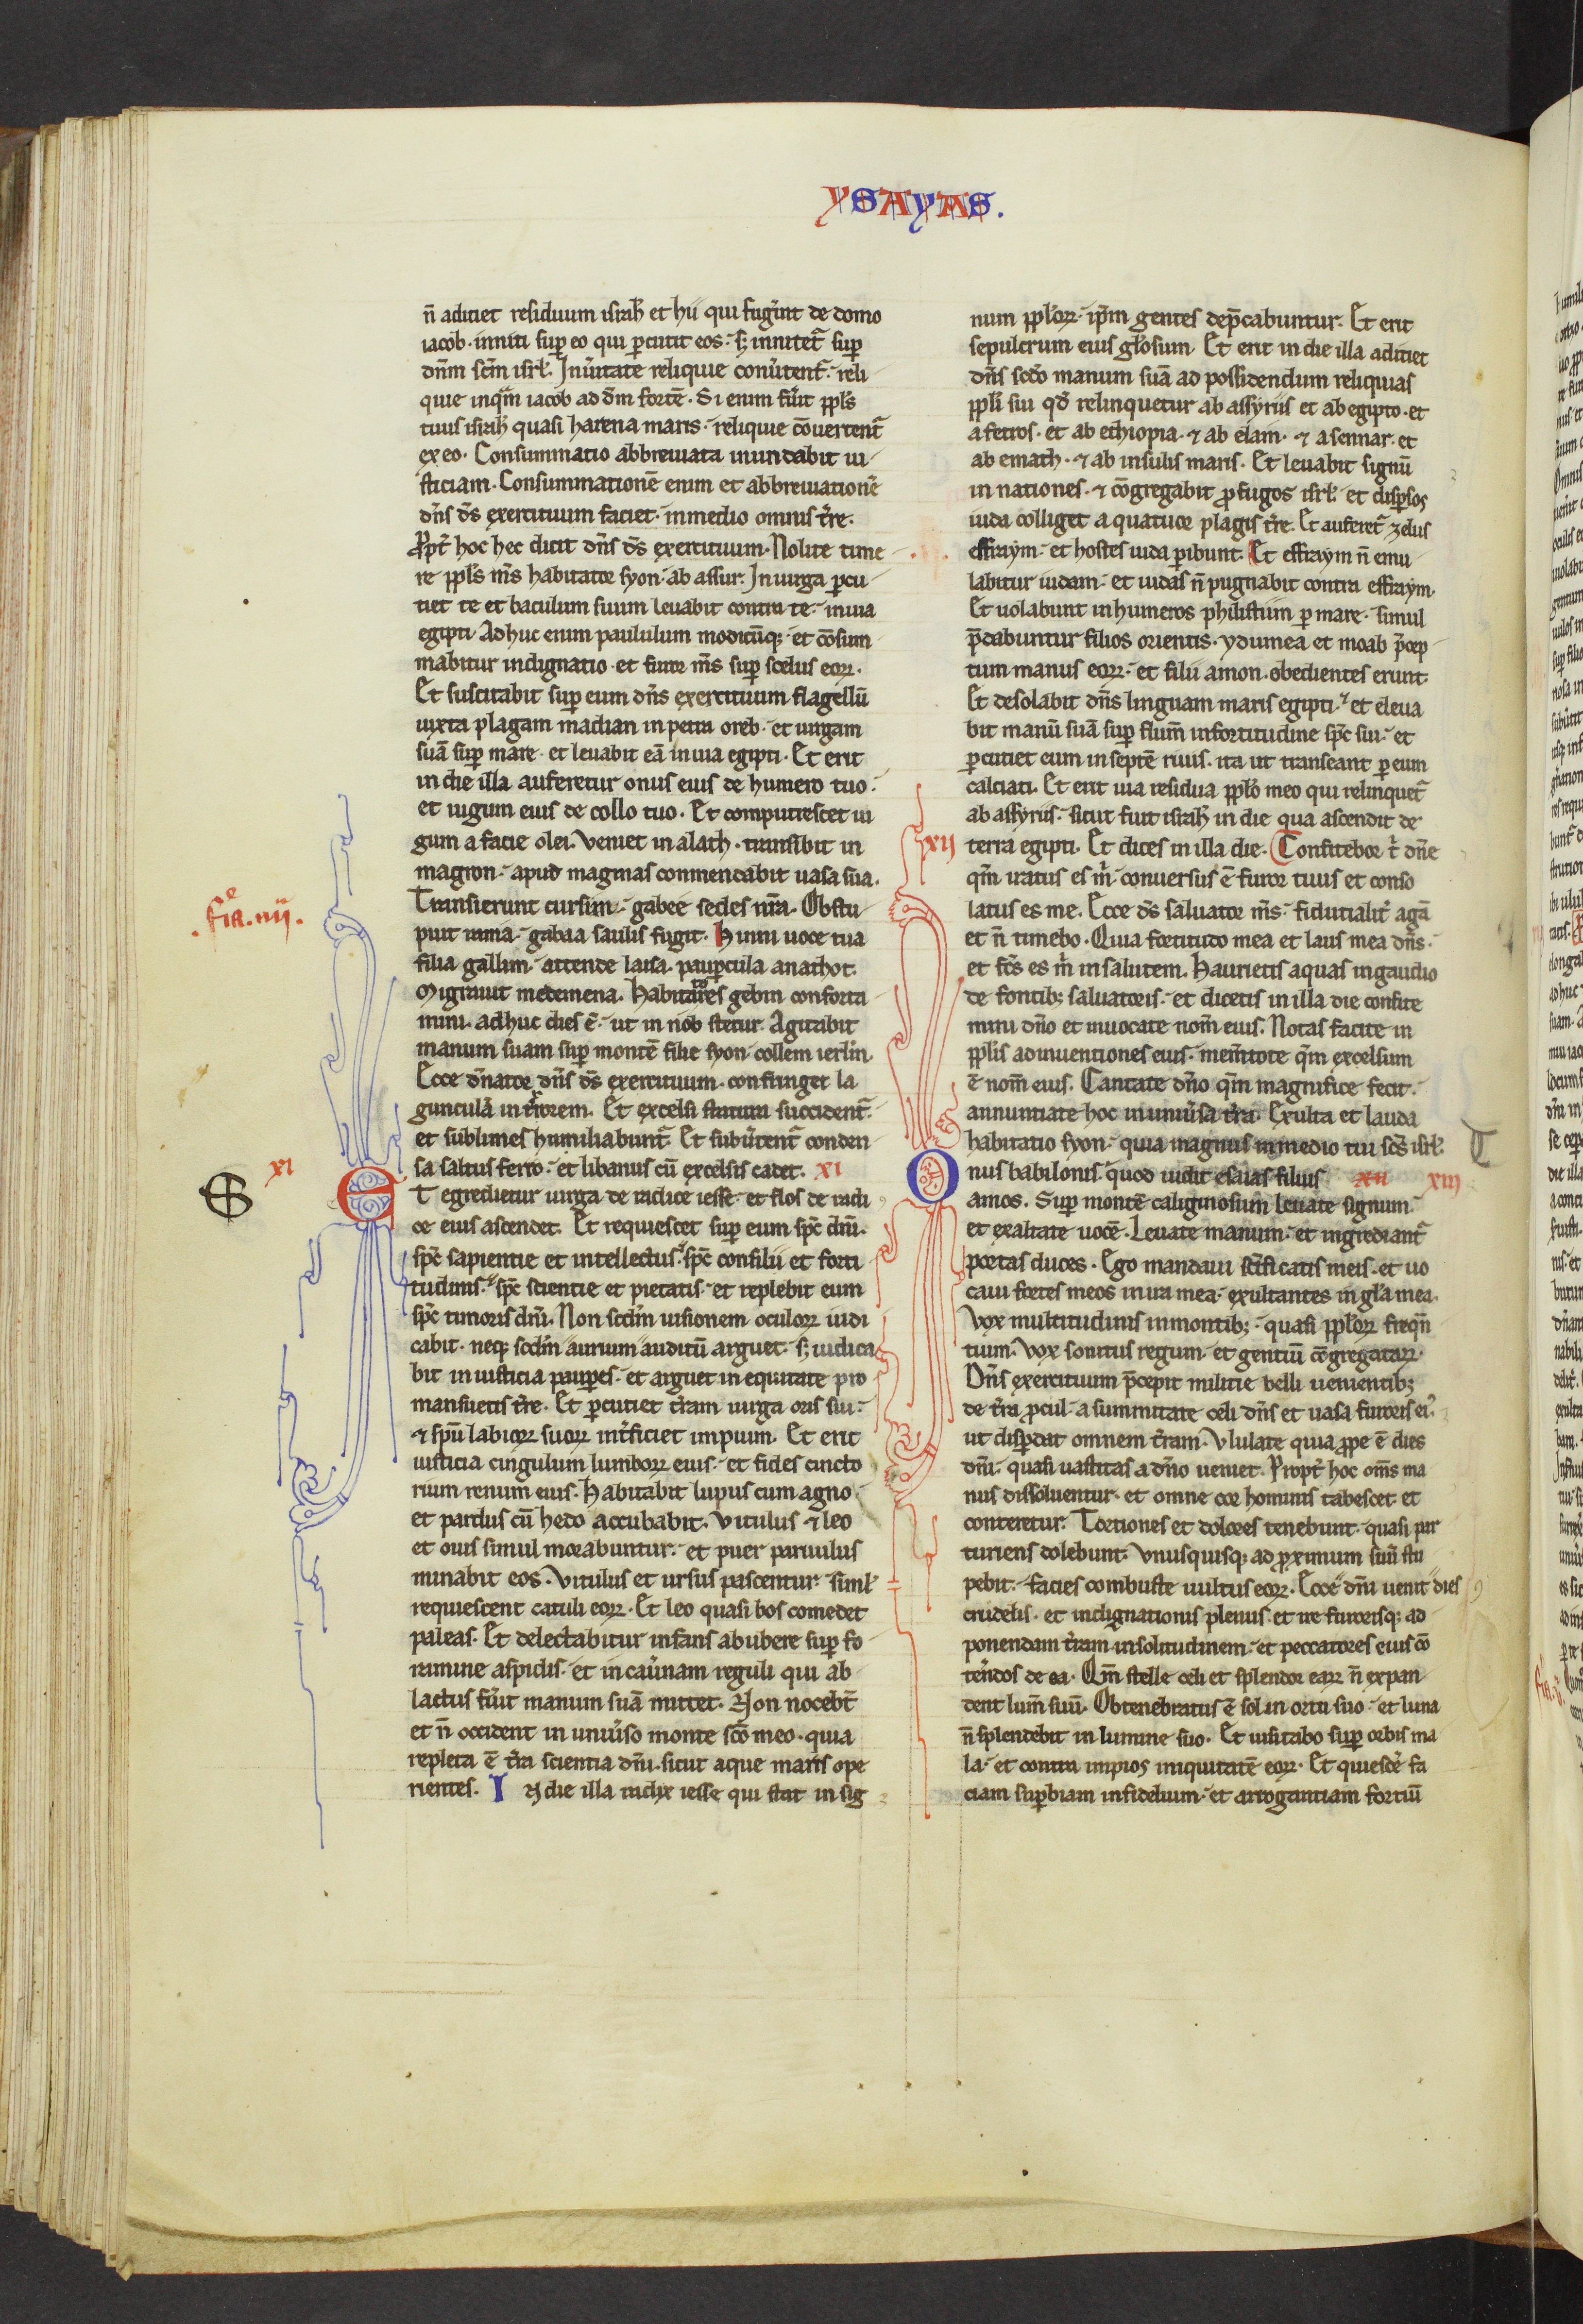 YSAYAS.
n̄ adiciet residuum israł et hii qui fug̾int de domo
iacob. inniti sup̱ eo qui p̱cutit eos. sꝫ innitet᷑ sup̱
dn̄m sc̄m isrł. In u̾itate reliquie conu̾tent᷑. reli
quie inquā iacob ad dm̄ fortē. Si enim fu̾it ppl̄s
tuus israł quasi harena maris. reliquie cōuertent᷑
ex eo. Consummatio abbreuiata inundabit iu
sticiam. Consummationē enim et abbreuiationē
dn̄s ds̄ exercituum faciet. in medio omnis t̾re.
Ꝓpt̾ hoc hec dicit dn̄s ds̄ exercituum. Nolite time
re ppl̄s ms̄ habitator syon. ab assur. In uirga p̱cu
tiet te et baculum suum leuabit contra te. in uia
egipti. Adhuc enim paululum modicūqꝫ. et cōsum
mabitur indignatio. et furor ms̄ sup̱ scelus eoꝝ.
Et suscitabit sup̱ eum dn̄s exercituum flagellū
iuxta plagam madian in petra oreb. et uirgam
suā sup̱ mare. et leuabit eā in uia egipti. Et erit
in die illa auferetur onus eius de humero tuo.
et iugum eius de collo tuo. Et computrescet iu
gum a facie olei. Veniet in aiath. transibit in
magron. apud magmas conmendabit uasa sua.
.fīa.e .iiij.
Transierunt cursim. gabee sedes nr̄a. Obstu
puit rama. gabaa saulis fugit. Hinni uoce tua
filia gallim. attende laisa. paup̱cula anathot.
Migrauit medemena. Habitatores gebin conforta
mini. adhuc dies ē. ut in nob stetur. Agitabit
manum suam sup̱ montē filie syon. collem ierlm̄.
Ecce dn̄ator dn̄s ds̄ exercituum. confringet la
gunculā in t̾rorem. Et excelsi statura succident᷑.
et sublimes humiliabunt᷑. Et subu̾tent᷑ conden
sa saltus ferro. et libanus cū excelsis cadet. XI
XI
ET egredietur uirga de radice iesse. et flos de radi
ce eius ascendet. Et requiescet sup̱ eum spc̄ dn̄i.
spc̄ sapientie et intellectus. spc̄ consilii et forti
tudinis. spc̄ scientie et pietatis. et replebit eum
spc̄ timoris dn̄i. Non scdm̄ uisionem oculoꝝ iudi
cabit. neqꝫ scdm̄ aurium auditū arguet. sꝫ iudica
bit in iusticia paup̱es. et arguet in equitate pro
mansuetis t̾re. Et p̱cutiet t̾ram uirga oris sui.
⁊ spū labioꝝ suoꝝ int̾ficiet impium. Et erit
iusticia cingulum lumboꝝ eius. et fides cincto
rium renum eius. Habitabit lupus cum agno.
et pardus cū hedo accubabit. Vitulus ⁊ leo
et ouis simul morabuntur. et puer paruulus
minabit eos. Vitulus et ursus pascentur. siml̄
requiescent catuli eoꝝ. Et leo quasi bos comedet
paleas. Et delectabitur infans ab ubere sup̱ fo
ramine aspidis. et in cau̾nam reguli qui ab
lactus fu̾it manum suā mittet. Non nocebt̄
et n̄ occident in uniu̾so monte sc̄o meo. quia
repleta ē t̾ra scientia dn̄i. sicut aque maris ope
rientes. IN die illa radix iesse qui stat in sig
num ppl̄oꝝ. ip̄m gentes dep̄cabuntur. Et erit
sepulcrum eius gl̄osum. Et erit in die illa adiciet
dn̄s scd̄o manum suā ad possidendum reliquias
ppl̄i sui qd̄ relinquetur ab assyriis et ab egipto. et
a fetros. et ab ethiopia. ⁊ ab elam. ⁊ a sennar. et
ab emath. ⁊ ab insulis maris. Et leuabit signū
in nationes. ⁊ cōgregabit ꝓfugos isrł. et disp̱sos
iuda colliget a quatuor plagis t̾re. Et auferet᷑ zelus
effraym. et hostes iuda p̱ibunt. Et effraym n̄ emu
labitur iudam. et iudas n̄ pugnabit contra effraym.
Et uolabunt in humeros philistiim p̱ mare. simul
p̄dabuntur filios orientis. ydumea et moab p̄cep
tum manus eoꝝ. et filii amon. obedientes erunt.
Et desolabit dn̄s linguam maris egipti. et eleua
bit manū suā sup̱ flum̄ in fortitudine spc̄ sui. et
p̱cutiet eum in septē riuis. ita ut transeant p̱ eum
calciati. Et erit uia residua ppl̄o meo qui relinquet᷑
ab assyriis. sicut fuit israł in die qua ascendit de
XII terra egipti. Et dices in illa die. Confitebor t̾ dn̄e
qm̄ iratus es m̾. conuersus ē furor tuus et conso
latus es me. Ecce ds̄ saluator ms̄. fiducialit̾ agā
et n̄ timebo. Quia fortitudo mea et laus mea dn̄s.
et fc̄s es m̾ in salutem. Haurietis aquas in gaudio
de fontibꝫ saluatoris. et dicetis in illa die confite
mini dn̄o et inuocate nom̄ eius. Notas facite in
ppl̄is adinuentiones eius. mem̄tote qm̄ excelsum
ē nom̄ eius. Cantate dn̄o qm̄ magnifice fecit.
annuntiate hoc in uniu̾sa t̾ra. Exulta et lauda
habitatio syon. quia magnus in medio tui sc̄s isrł.
Onus babilonis. quod uidit esaias filius XII XIII
amos. Sup̱ montē caliginosum leuate signum.
et exaltate uocē. Leuate manum. et ingrediant᷑
portas duces. Ego mandaui sc̄ificatis meis. et uo
caui fortes meos in ira mea. exultantes in gl̄a mea.
Vox multitudinis in montibꝫ. quasi ppl̄oꝝ freqn̄
tium. Vox sonitus regum. et gentiū cōgregataꝝ.
Dn̄s exercituum p̄cepit militie belli uenientibꝫ
de t̾ra ꝓcul. a summitate celi dn̄s et uasa furoris ei᾿.
ut disp̱dat omnem t̾ram. Vlulate quia ꝓpe ē dies
dn̄i. quasi uastitas a dn̄o ueniet. Propt̾ hoc om̄s ma
nus dissoluentur. et omne cor hominis tabescet. et
conteretur. Tortiones et dolores tenebunt. quasi par
turiens dolebunt. Vnusquisqꝫ ad ꝓximum suū stu
pebit. facies combuste uultus eoꝝ. Ecce dn̄i uenit dies
crudelis. et indignationis plenus. et ire furorisqꝫ. ad
ponendam t̾ram in solitudinem. et peccatores eius cō
te̾ndos de ea. Qm̄ stelle celi et splendor eaꝝ n̄ expan
dent lum̄ suū. Obtenebratus ē sol in ortu suo. et luna
n̄ splendebit in lumine suo. Et uisitabo sup̱ orbis ma
la. et contra impios iniquitatē eoꝝ. Et quiesce̾ fa
ciam sup̱biam infidelium. et arrogantiam fortiū